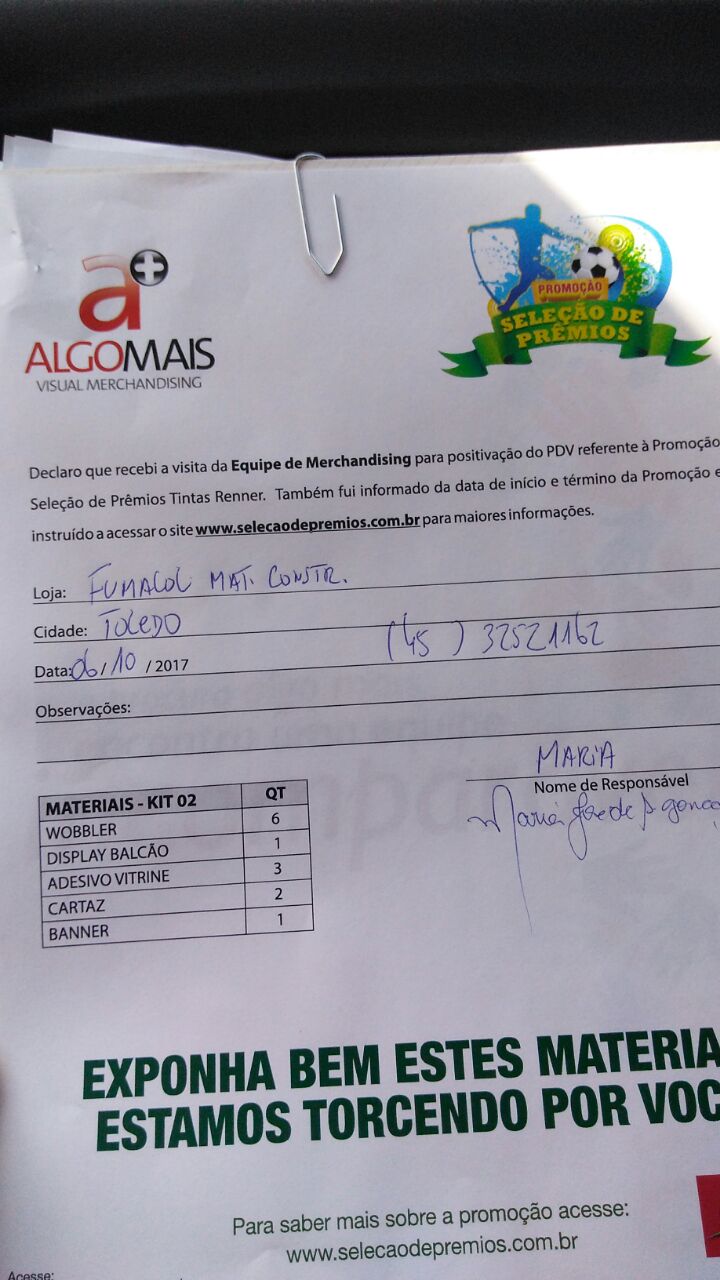 a+
ALGOMAIS
VISUAL MERCHANDISING
PROMOÇÃO
SELEÇÃO DE
PRÊMIOS
Declaro que recebi a visita da Equipe de Merchandising para positivação do PDV referente à Promoção
Seleção de Prêmios Tintas Renner. Também fui informado da data de início e término da Promoção e
instruído a acessar o site www.selecaodepremios.com.br para maiores informações.
Loja: FUMACOL MAT. CONSTR.
Cidade: TOLEDO
(45) 32521162
Data: 06/10/2017
Observações:
MARIA
Nome de Responsável
Maria
MATERIAIS - KIT 02 QT
WOBBLER 6
DISPLAY BALCÃO 1
ADESIVO VITRINE 3
CARTAZ 2
BANNER 1
EXPONHA BEM ESTES MATERIA
ESTAMOS TORCENDO POR VOC
Para saber mais sobre a promoção acesse:
www.selecaodepremios.com.br
Acesse: